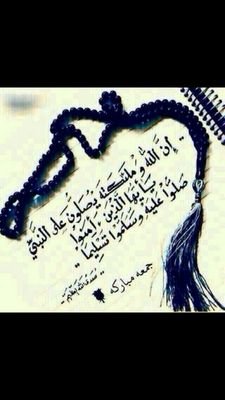 إن الله وملئكته يصلون على النبي
يأيها الذين ءامنوا
صلوا عليه وسلموا تسليما
جمعه مباركه